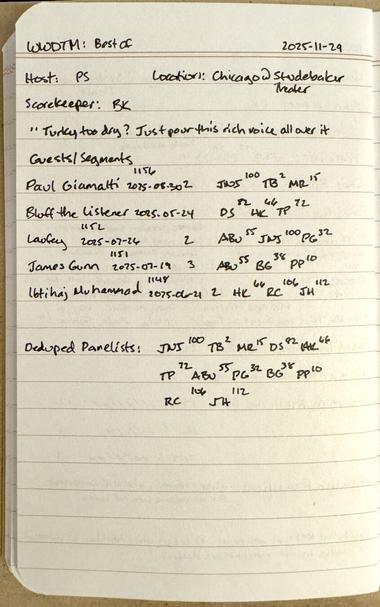 WWDTM: Best of 2025-11-29
Host: PS Location: Chicago @ Studebaker
Theater
Scorekeeper: BK
"Turkey too dry? Just pour this rich voice all over it
Guests/Segments
Paul Giamatti 1156 2025-08-30 2 JNJ 100 TB 2 MR 15
Bluff the Listener 2025-05-24 DS 82 HK 66 TP 72
Laufey 1152 2025-07-26 2 ABU 55 JNJ 100 PG 32
James Gunn 1151 2025-07-19 3 ABU 55 BG 38 PP 10
Ibtihaj Muhammad 1148 2025-06-21 2 HK 66 RC 106 JH 112
Deduped Panelists: JNJ 100 TB 2 MR 15 DS 82 HK 66
TP 72 ABU 55 PG 32 BG 38 PP 10
RC 106 JH 112